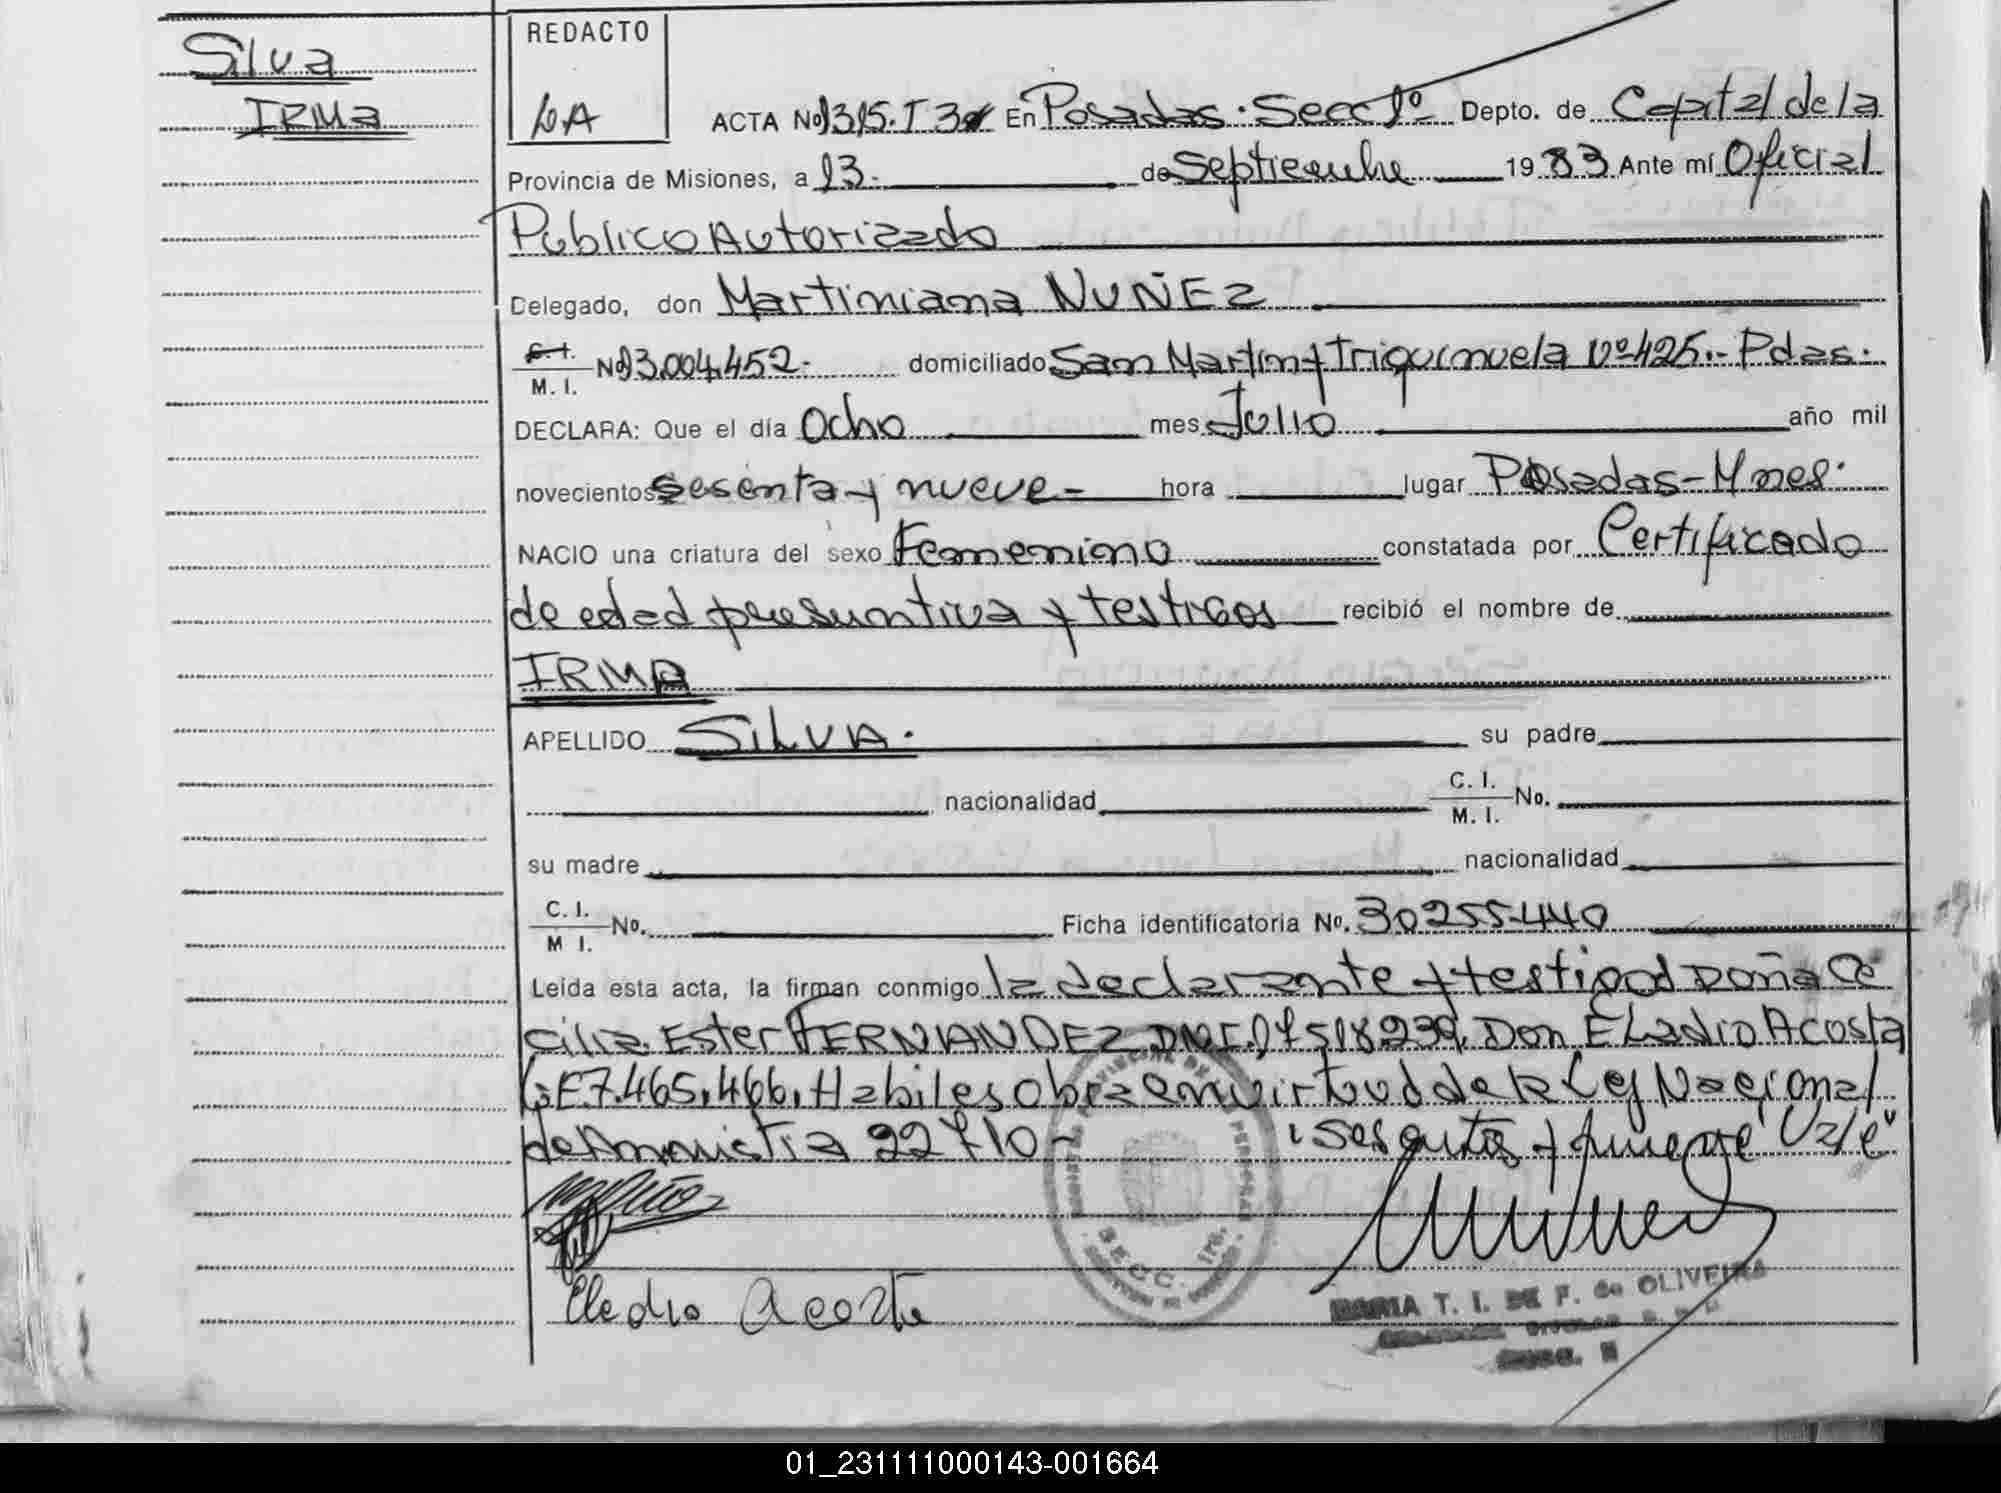 Silva
IRMA
REDACTO
LA
ACTA No 1315. T 3º En Posadas. Secc 1º Depto. de Capital de la
Provincia de Misiones, a 13. de Septiembre 1983 Ante mí Oficial
Público Autorizado
Delegado, don Martiniana NUÑEZ
C. I.
M. I. No 3.004.452. domiciliado San Martin y Triquinuela Nº 425.- Pdas.
DECLARA: Que el día Ocho mes Julio año mil
novecientos Sesenta y nueve - hora lugar Posadas - Mnes.
NACIO una criatura del sexo Femenino constatada por Certificado
de edad presuntiva y testigos recibió el nombre de
IRMA
APELLIDO SILVA. su padre
nacionalidad C. I.
M. I. No.
su madre nacionalidad
C. I.
M I. No. Ficha identificatoria No. 30255440
Leída esta acta, la firman conmigo la declarante y testigos Doña Ce
cilia Ester FERNANDEZ DNI. Don Eladio Acosta
7.465.466. Habiles Obra en virtud de la Ley Nacional
de Amnistia 22410 - "Sesenta y nueve" Vale"
Eladio Acosta
SECC. 1ra.
MARIA T. I. DE F. de OLIVEIRA
01_231111000143-001664